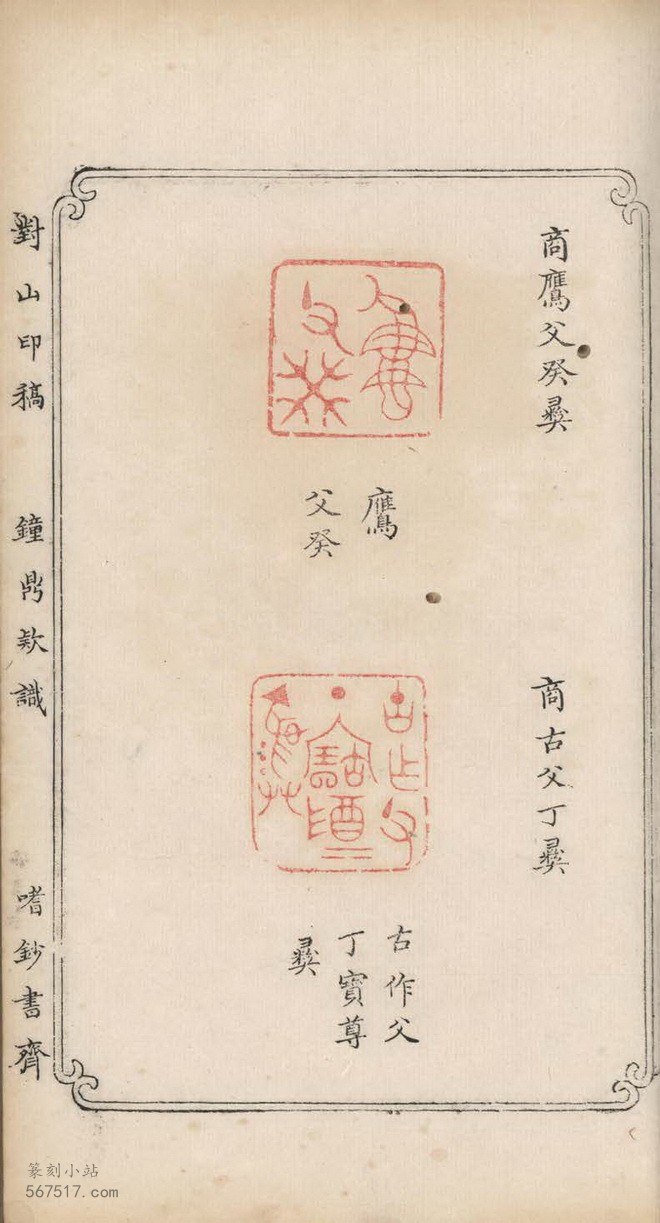 商鷹父癸彝
鷹
父癸
商古父丁彝
古作父
丁寶尊
彝
對山印稿
鐘鼎欵識
嗜鈔書齊
篆刻小站
567517.com